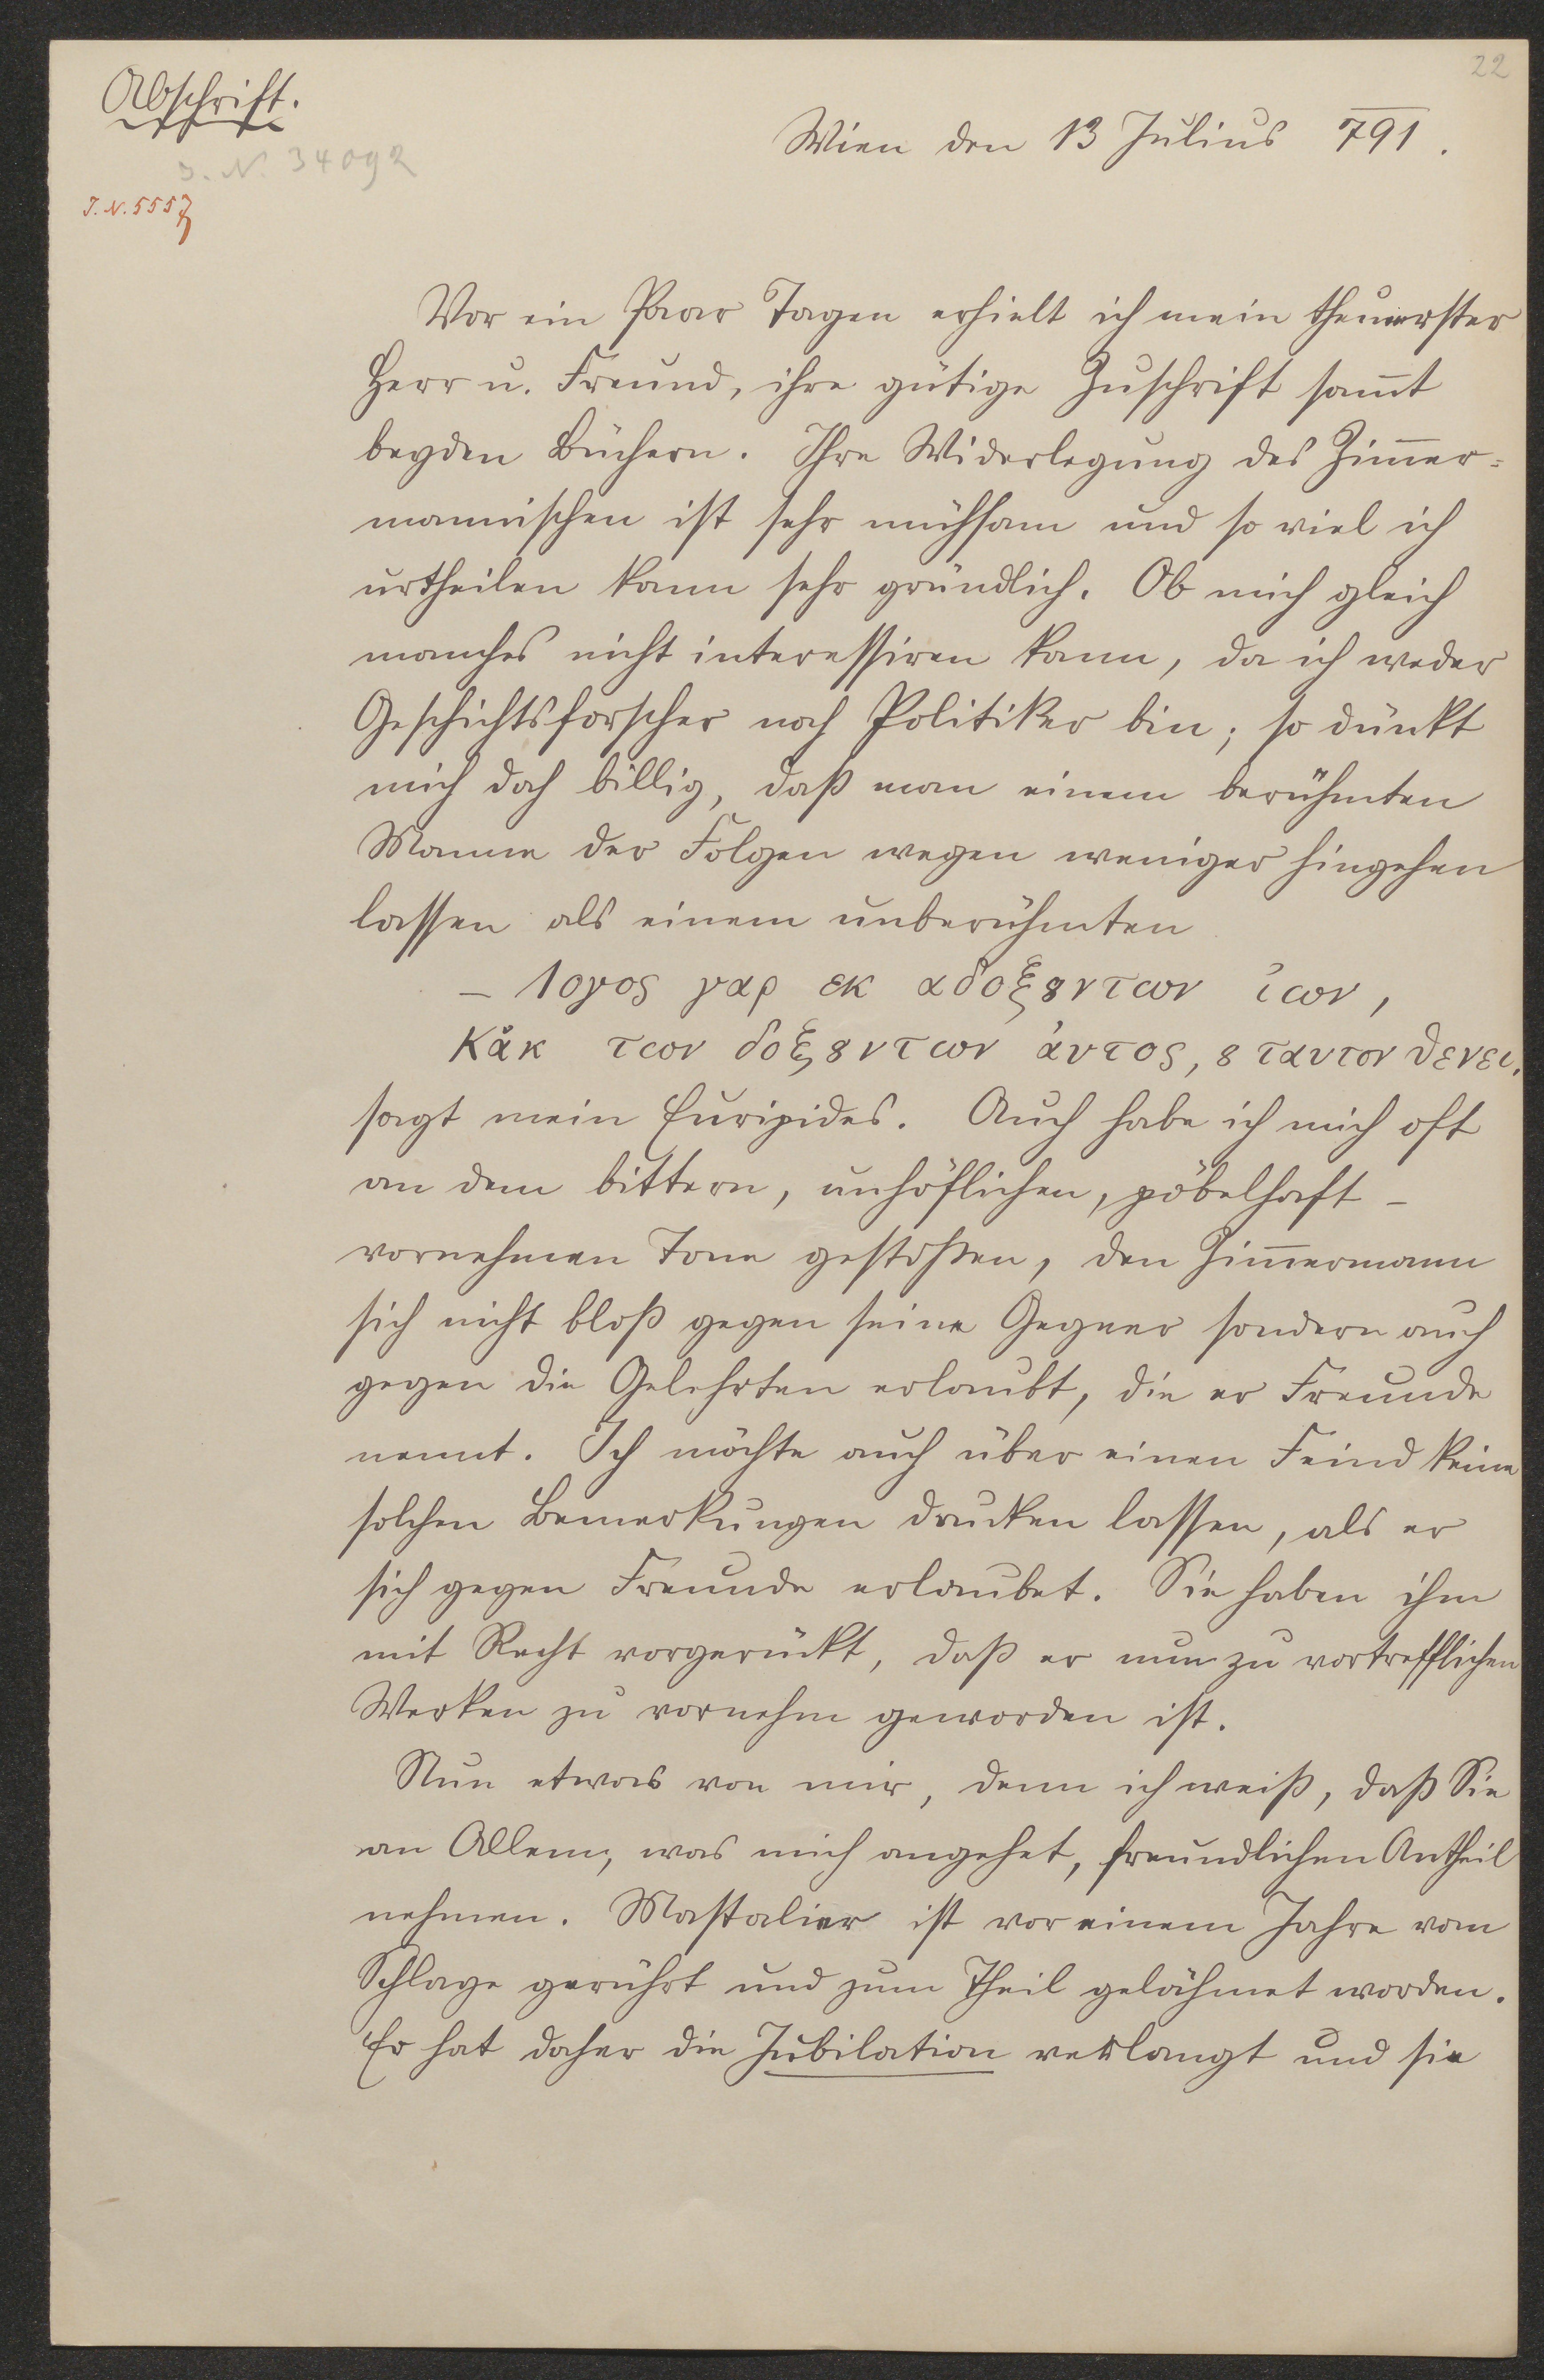 22
Abschrift.
Wien den 13 Julius 791.
I. N. 34092
I. N. 5557
Vor ein Paar Tagen erhielt ich mein theuerster
Herr u. Freund, ihre gütige Zuschrift sam̅t
beyden Büchern. Ihre Widerlegung des Zim̅er=
mannischen ist sehr mühsam und so viel ich
urtheilen kann sehr gründlich. Ob mich gleich
manches nicht interessiren kann, da ich weder
Geschichtsforscher noch Politiker bin; so dünkt
mich doch billig, daß man einem berühmten
Manne der Folgen wegen weniger hingehen
lassen als einem unberühmten
– λογος γαρ εκ αδοξȣντων ἰων,
Κἀκ των δοξȣντων ἀυτος, ȣ ταυτον θενει.
sagt mein Euripides. Auch habe ich mich oft
an dem bittern, unhöflichen, pöbelhaft –
vornehmen Tone gestoßen, den Zim̅ermann
sich nicht bloß gegen seine Gegner sondern auch
gegen die Gelehrten erlaubt, die er Freunde
nennt. Ich möchte auch über einen Feind keine
solchen Bemerkungen drucken lassen, als er
sich gegen Freunde erlaubet. Sie haben ihm
mit Recht vorgerückt, daß er nun zu vortrefflichen
Werken zu vornehm geworden ist.
Nun etwas von mir, denn ich weiß, daß Sie
an Allem, was mich angehet, freundlichen Antheil
nehmen. Mastalier ist vor einem Jahre vom
Schlage gerührt und zum Theil gelähmet worden.
Er hat daher die Jubilation verlangt und sie